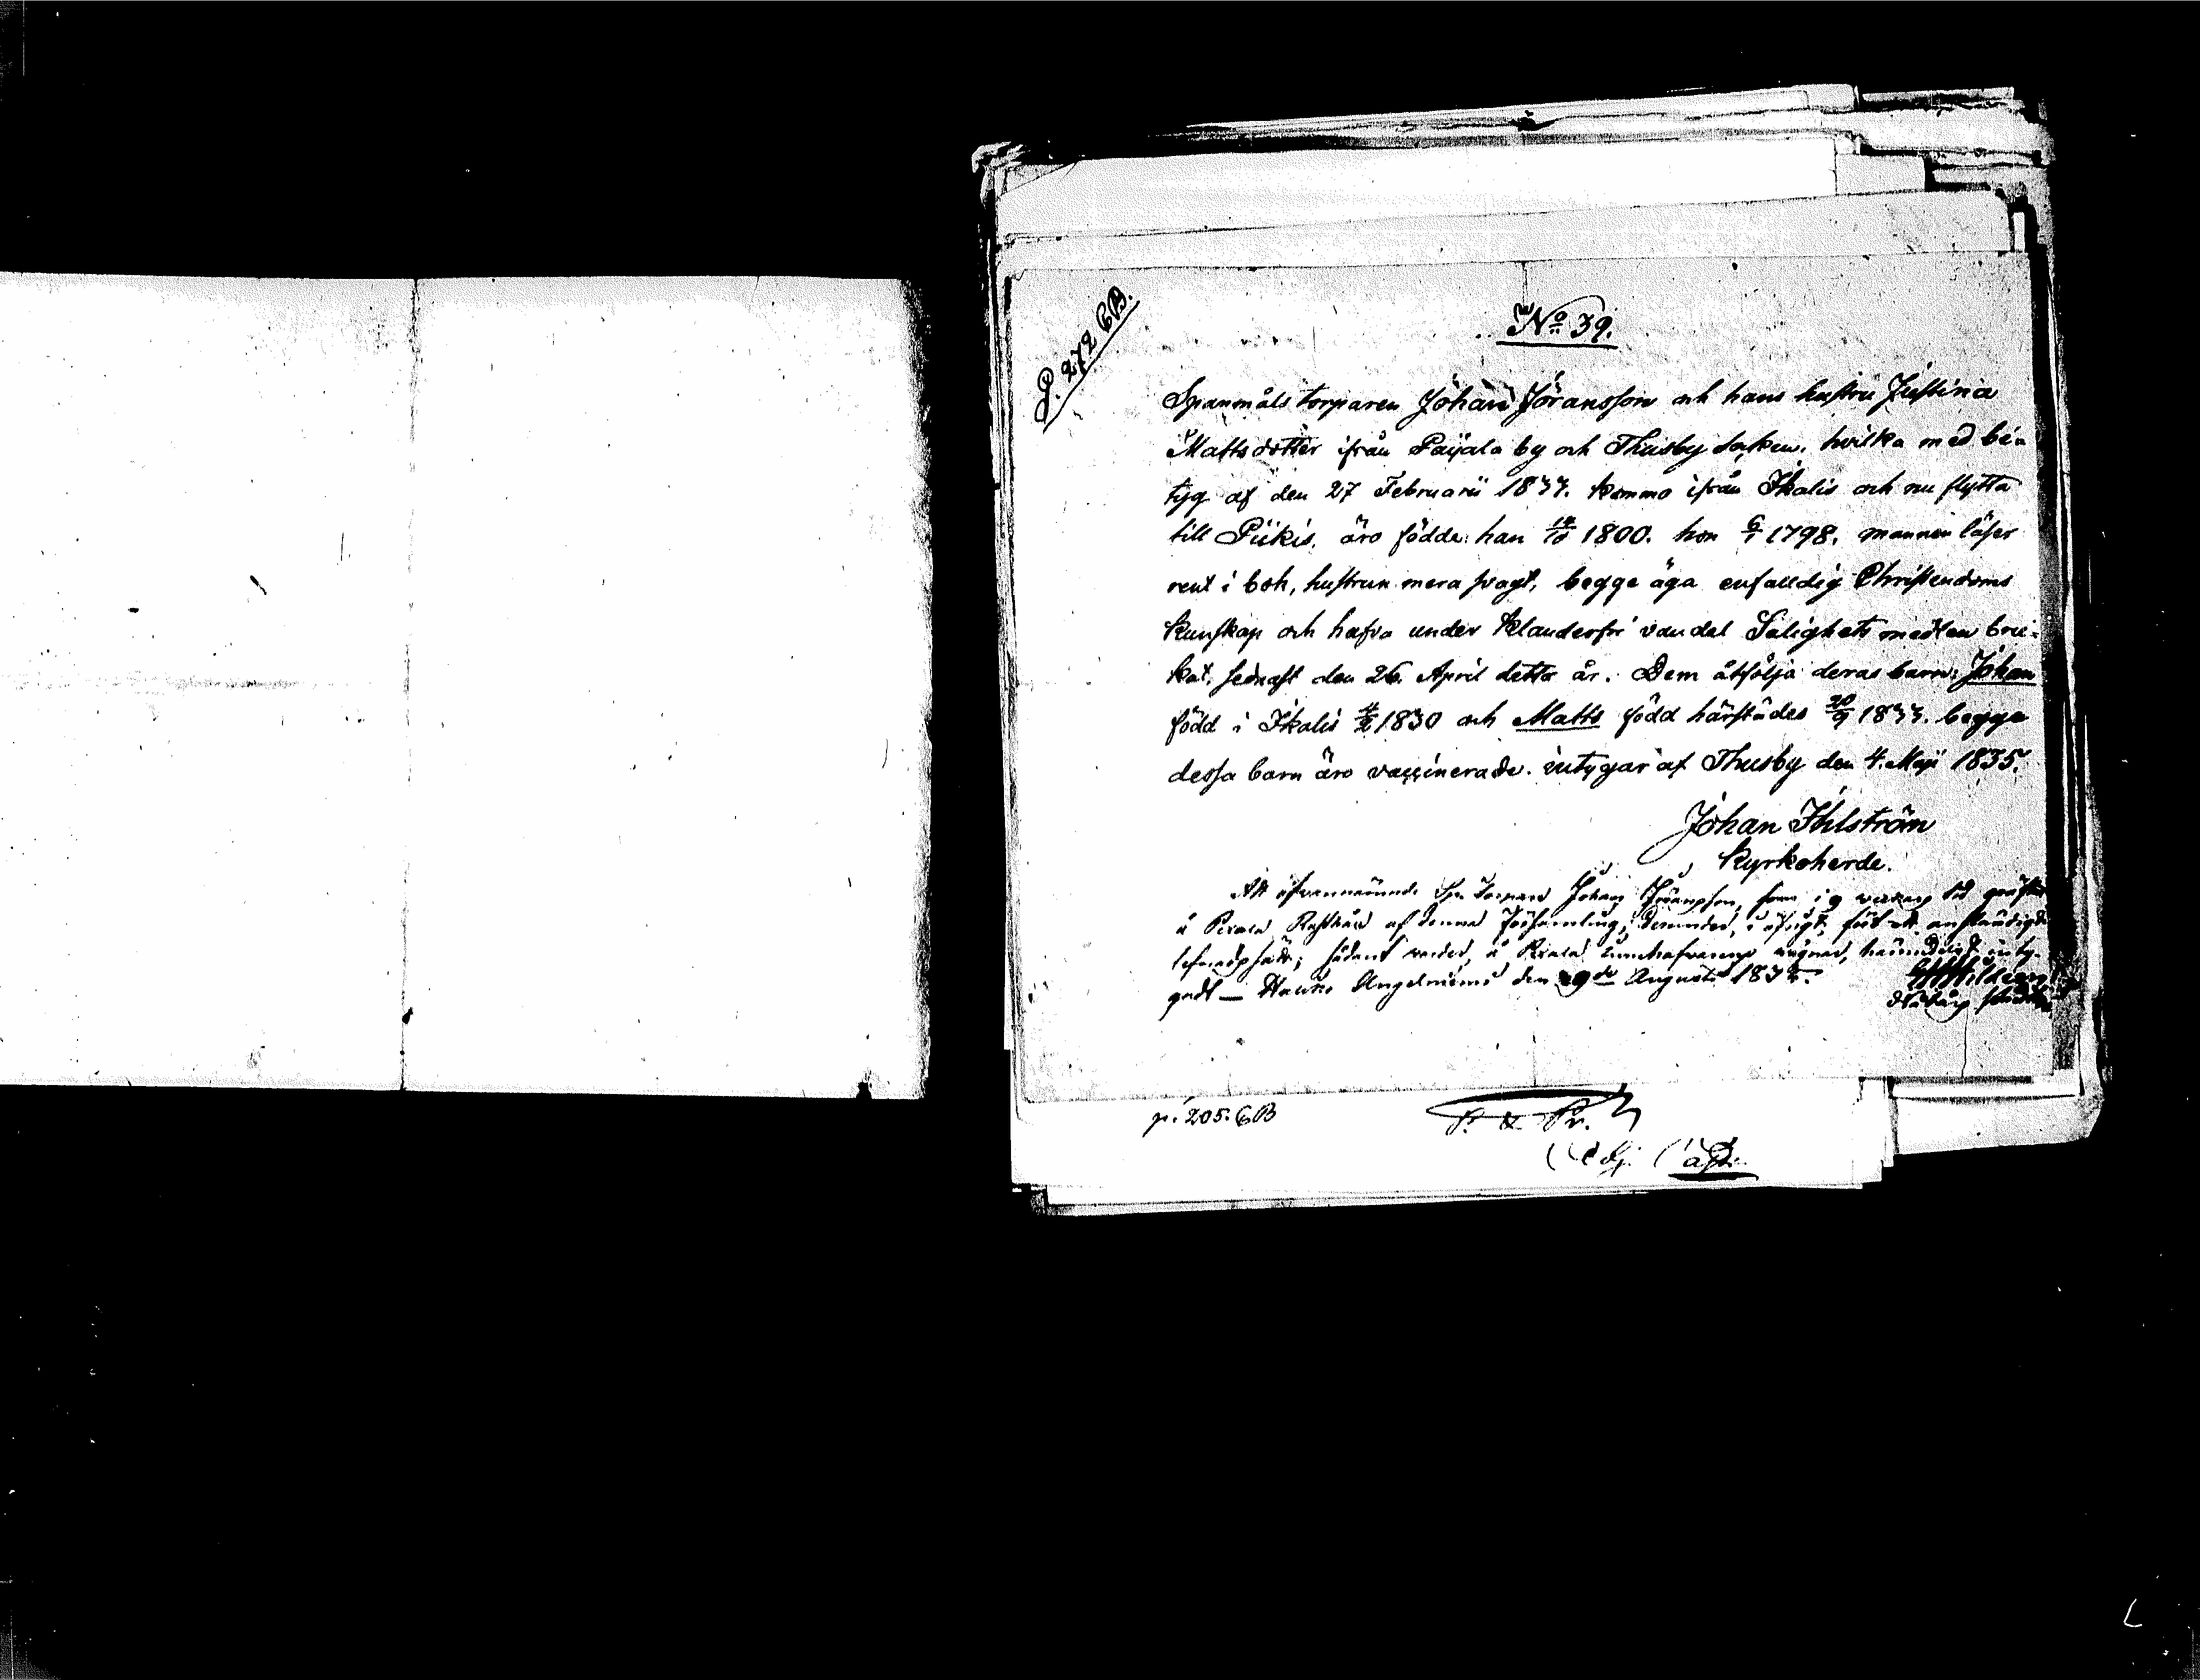 P. 272 CB.
No 39.
Spanmåls torparen Johan Jöransson och hans hustru Justina
Mattsdotter ifrån Paijala by och Thusby socken, hvilka med be-
tyg af den 27 Februarii 1833. kommo ifrån Ikalis och nu flytta
till Piikis, äro födde: han 1800. hon 6/1 1798. mannen läser
rent i bok, hustrun mera svagt, begge äga enfalldig Christendoms
kunskap och hafva under klanderfri vandel Salighets medlen bru-
kat, sednast den 26. April detta år. Dem åtfölja deras barn: Johan
född i Ikalis 1830 och Matts född härstädes 20/9 1833. begge
dessa barn äro vaccinerade. intygar af Thusby den 4. Maji 1835.
Johan Ihlström
Kyrkoherde.
Att ofvannämnde Sp. Torpare Johan Jöransson, som i 9 veckors tid
å af denna Församling, derunder, i öfrigt, fört ett anständigt
sådant varder, å innehafvarens vägnar, härmedelst inty-
gadt — Angelniemi den 9de Augusti
p. 205. CB